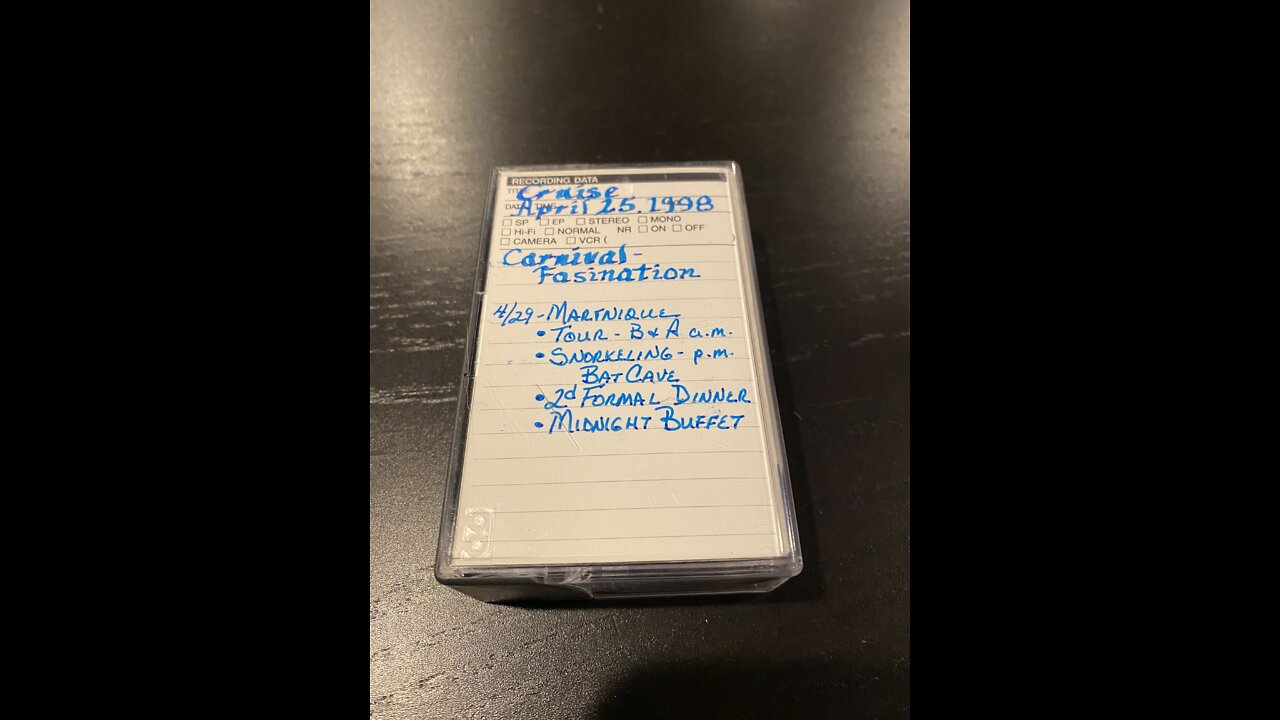 RECORDING DATA
TITLE Cruise
DATE/TIME April 25, 1998
SP EP STEREO MONO
Hi-Fi NORMAL NR ON OFF
CAMERA VCR ( )
Carnival-
Fasination
4/29-MARTNIQUE
• TOUR - B & A a.m.
• SNORKELING - p.m.
BAT CAVE
• 2d FORMAL DINNER
• MIDNIGHT BUFFET